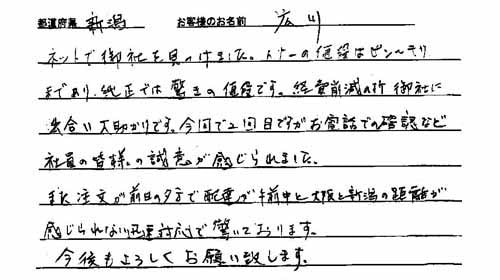 都道府県 新潟 お客様のお名前 広川
ネットで御社を見つけました。トナーの値段はピン〜キリ
まであり、純正では驚きの値段です。経費削減の折 御社に
出合い大助かりです。今回で2回目ですがお電話での確認など
社員の皆様の誠意が感じられました。
また注文が前日の夕方で配達が午前中と大阪と新潟の距離が
感じられない迅速対応で驚いております。
今後もよろしくお願い致します。